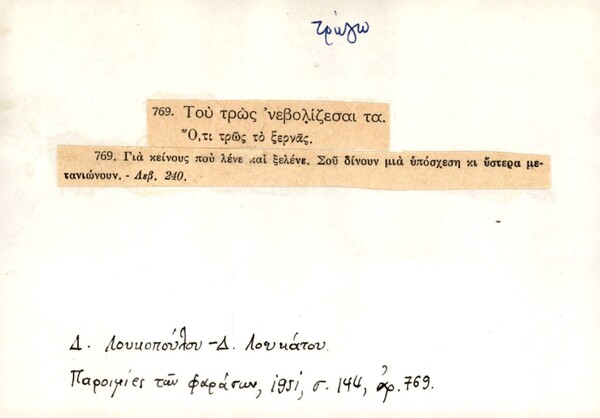 τρώγω
769. Τοῦ τρὼς ᾿νεβολίζεσαι τα.
Ὅ,τι τρῶς τὸ ξερνᾶς.
769. Γιὰ κείνους ποὺ λένε καὶ ξελένε. Σοῦ δίνουν μιὰ ὑπόσχεση κι ὕστερα με-
τανιώνουν. - Λεβ. 240.
Δ. Λουκοπούλου - Δ. Λουκάτου.
Παροιμίες τῶν Φαράσων, 1951, σ. 144, ἀρ. 769.